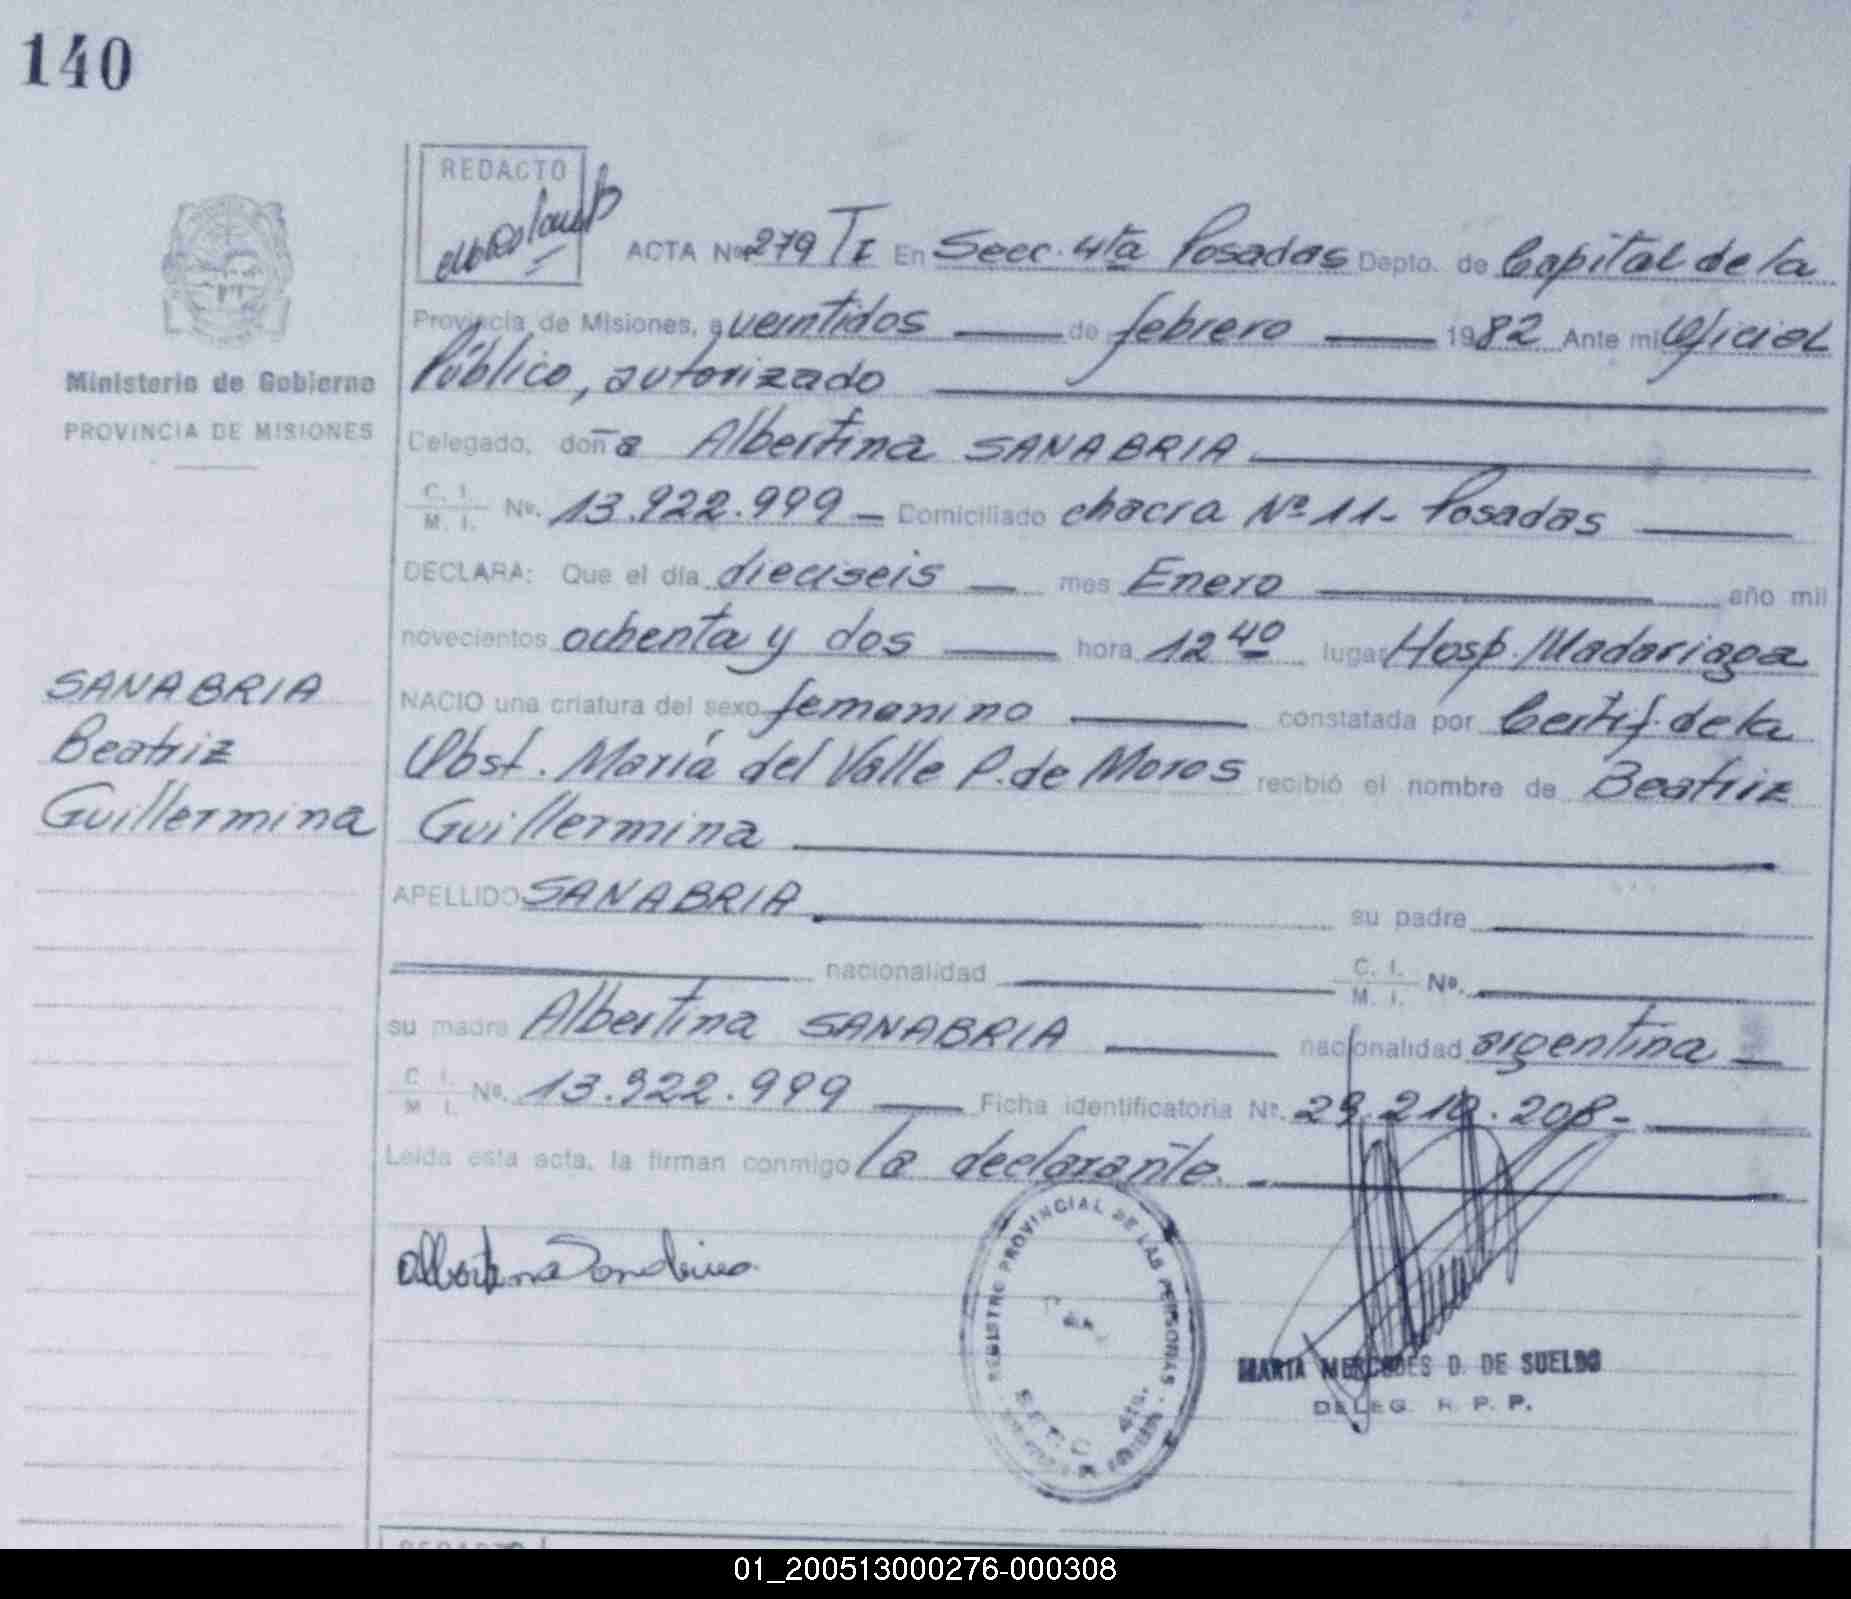 140
REDACTO
ACTA Nº 279 TI En Secc. 4ta Posadas Depto. de Capital de la
Provincia de Misiones, a veintidos de febrero 1982 Ante mi Oficial
Público, autorizado
Ministerio de Gobierno
PROVINCIA DE MISIONES
Delegado, doña Albertina SANABRIA
C. I. M. I. Nº. 13.922.999 - Domiciliado chacra Nº 11 - Posadas
DECLARA: Que el día dieciseis mes Enero año mil
novecientos ochenta y dos hora 12 40 lugar Hosp. Madariaga
SANABRIA
Beatriz
Guillermina
NACIO una criatura del sexo femenino constatada por Certif. de la
Obst. María del Valle P. de Moros recibió el nombre de Beatriz
Guillermina
APELLIDO SANABRIA su padre
nacionalidad C. I. M. I. Nº.
su madre Albertina SANABRIA nacionalidad argentina
C. I. M. I. Nº. 13.922.999 Ficha identificatoria Nº. 29.210.208-
Leída esta acta, la firman conmigo la declarante.
Albertina Sanabria
REGISTRO PROVINCIAL DE LAS PERSONAS
MARIA MERCEDES D. DE SUELDO
DELEG. R. P. P.
REDACTO
01_200513000276-000308